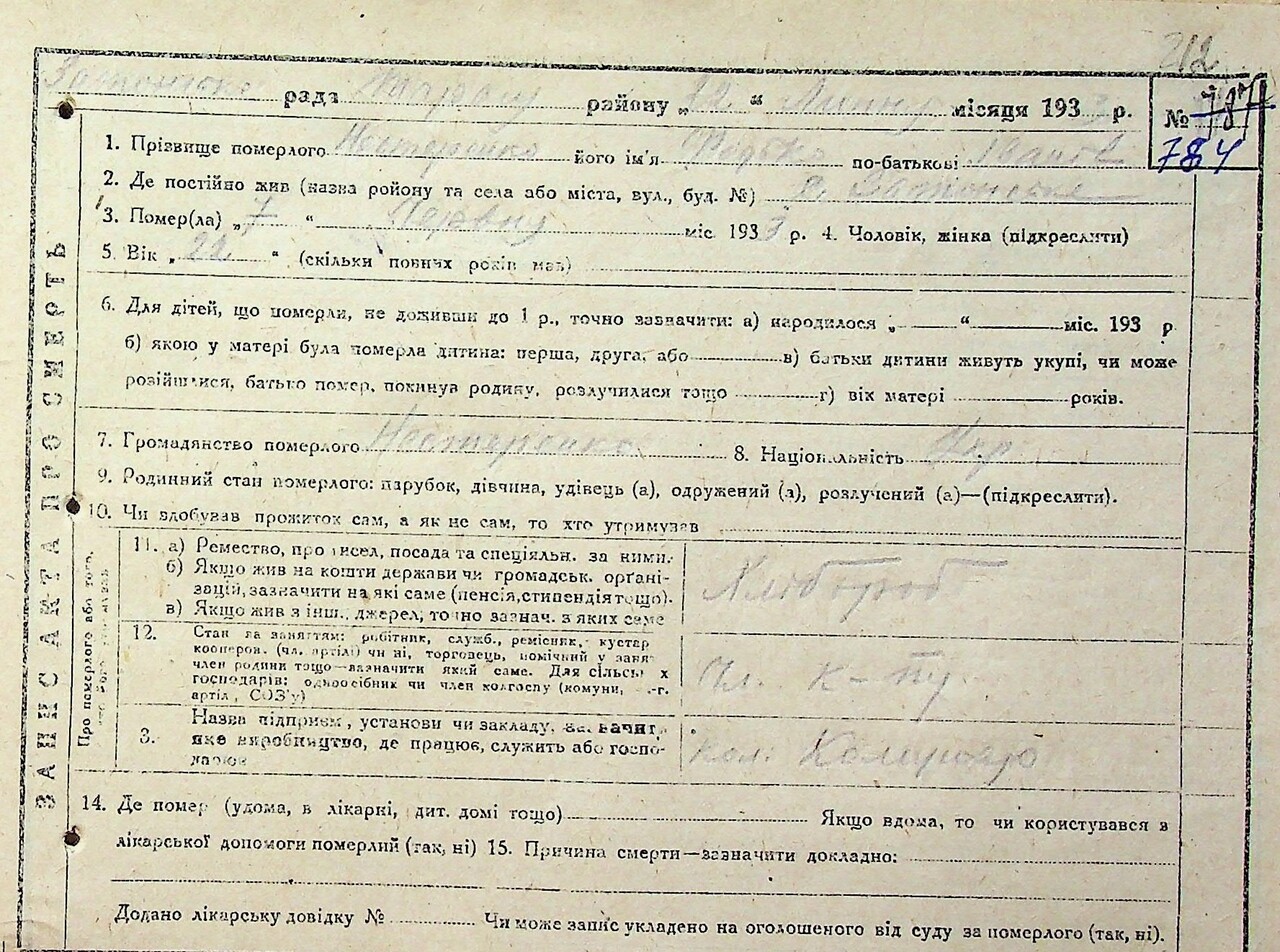 212
рада району „12 “ Липня місяця 1933 р.
№ 787
784
1. Прізвище померлого Нестеренко його ім'я Федько по-батькові Іванов
2. Де постійно жив (назва ройону та села або міста, вул., буд. №) с. Затонське
3. Помер(ла) „7 “ Червня міс 1933 р. 4. Чоловік, жінка (підкреслити)
5. Вік „ 22 “ (скільки повних років мав)
6. Для дітей, що померли, не доживши до 1 р., точно зазначити: а) народилося „ “ міс. 193 р
б) якою у матері була померла дитина: перша, друга, або в) батьки дитини живуть укупі, чи може
розійшлися, батько помер, покинув родину, розлучилися тощо г) вік матері років.
7. Громадянство померлого Нестеренко 8. Національність Укр
9. Родинний стан померлого: парубок, дівчина, удівець (а), одружений (а), розлучений (а)—(підкреслити).
10. Чи здобував прожиток сам, а як не сам, то хто утримував
ЗАПИС АКТА ПРО СМЕРТЬ
Про померлого або того,
11. а) Ремество, промисел, посада та спеціяльн. за ними.
б) Якщо жив на кошти держави чи громадськ. орґані-
зацій, зазначити на які саме (пенсія, стипендія тощо).
в) Якщо жив з інш. джерел, точно зазнач. з яких саме
Хлібороб
12. Стан за заняттям: робітник, служб., ремісник, кустар
кооперов. (чл. артілі) чи ні, торговець, помічний у заня-
член родини тощо—зазначити який саме. Для сільськ х
господарів: одноосібник чи член колгоспу (комуни, -г.
артіл, СОЗ'у)
Чл. к-пу
3. Назва підприєм, установи чи закладу, зазначит,
яке виробництво, де працює, служить або госпо-
дарює
кол.
14. Де помер (удома, в лікарні, дит. домі тощо) Якщо вдома, то чи користувався з
лікарської допомоги померлий (так, ні) 15. Причина смерти—зазначити докладно:
Додано лікарську довідку № Чи може запис укладено на оголошеного від суду за померлого (так, ні).